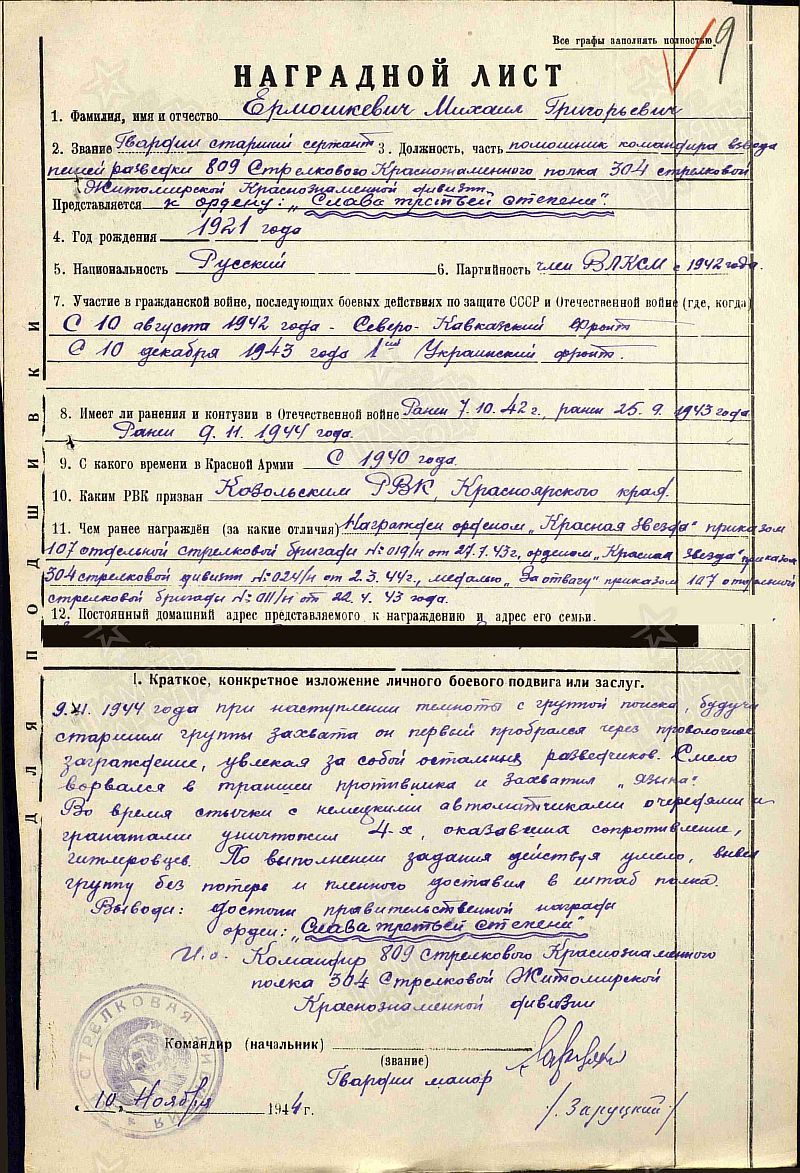 Все графы заполнять полностью.
9
НАГРАДНОЙ ЛИСТ
1. Фамилия, имя и отчество Ермошкевич Михаил Григорьевич
2. Звание Гвардии старший сержант 3. Должность, часть помошник командира взвода
пешей разведки 809 Стрелкового Краснознаменного полка 304 стрелковой
Житомирской Краснознаменной дивизии
Представляется к ордену: „Слава третьей степени".
4. Год рождения 1921 года
5. Национальность Русский 6. Партийность член ВЛКСМ с 1942 года.
7. Участие в гражданской войне, последующих боевых действиях по защите СССР и Отечественной войне (где, когда)
С 10 августа 1942 года - Северо-Кавказский Фронт
С 10 декабря 1943 года 1ый Украинский фронт.
8. Имеет ли ранения и контузии в Отечественной войне Ранен 7.10.42 г., ранен 25.9.1943 года
Ранен 9.11.1944 года.
9. С какого времени в Красной Армии С 1940 года.
10. Каким РВК призван Козольским РВК, Красноярского края.
11. Чем ранее награждён (за какие отличия) Награжден орденом „Красная звезда" приказом
107 отдельной стрелковой бригады №019/н от 27.7.43г, орденом „Красная звезда" приказом
304 стрелковой дивизии №024/н от 2.3.44г, медалью „За отвагу" приказом 107 отдельной
стрелковой бригады №011/н от 22.4.43 года.
12. Постоянный домашний адрес представляемого к награждению и адрес его семьи.
I. Краткое, конкретное изложение личного боевого подвига или заслуг.
9.XI.1944 года при наступлении темноты с групой поиска, будучи
старшим группы захвата он первый пробрался через проволочное
заграждение, увлекая за собой остальных разведчиков. Смело
ворвался в траншеи противника и захватил „языка".
Во время стычки с немецкими автоматчиками очередями и
гранатами уничтожил 4-х, оказавших сопротивление,
гитлеровцев. По выполнении задания действуя умело, вывел
группу без потерь и пленного доставил в штаб полка.
Выводы: достоин правительственной награды
орден: „Слава третьей степени"
И.о. Командир 809 Стрелкового Краснознаменного
полка 304 Стрелковой Житомирской
Краснознаменной дивизии
Командир (начальник)
(звание)
Гвардии майор
/Заруцкий/
„10" Ноября 1944 г.
СТРЕЛКОВАЯ ДИВИЗИЯ
ДЛЯ ПОДШИВКИ